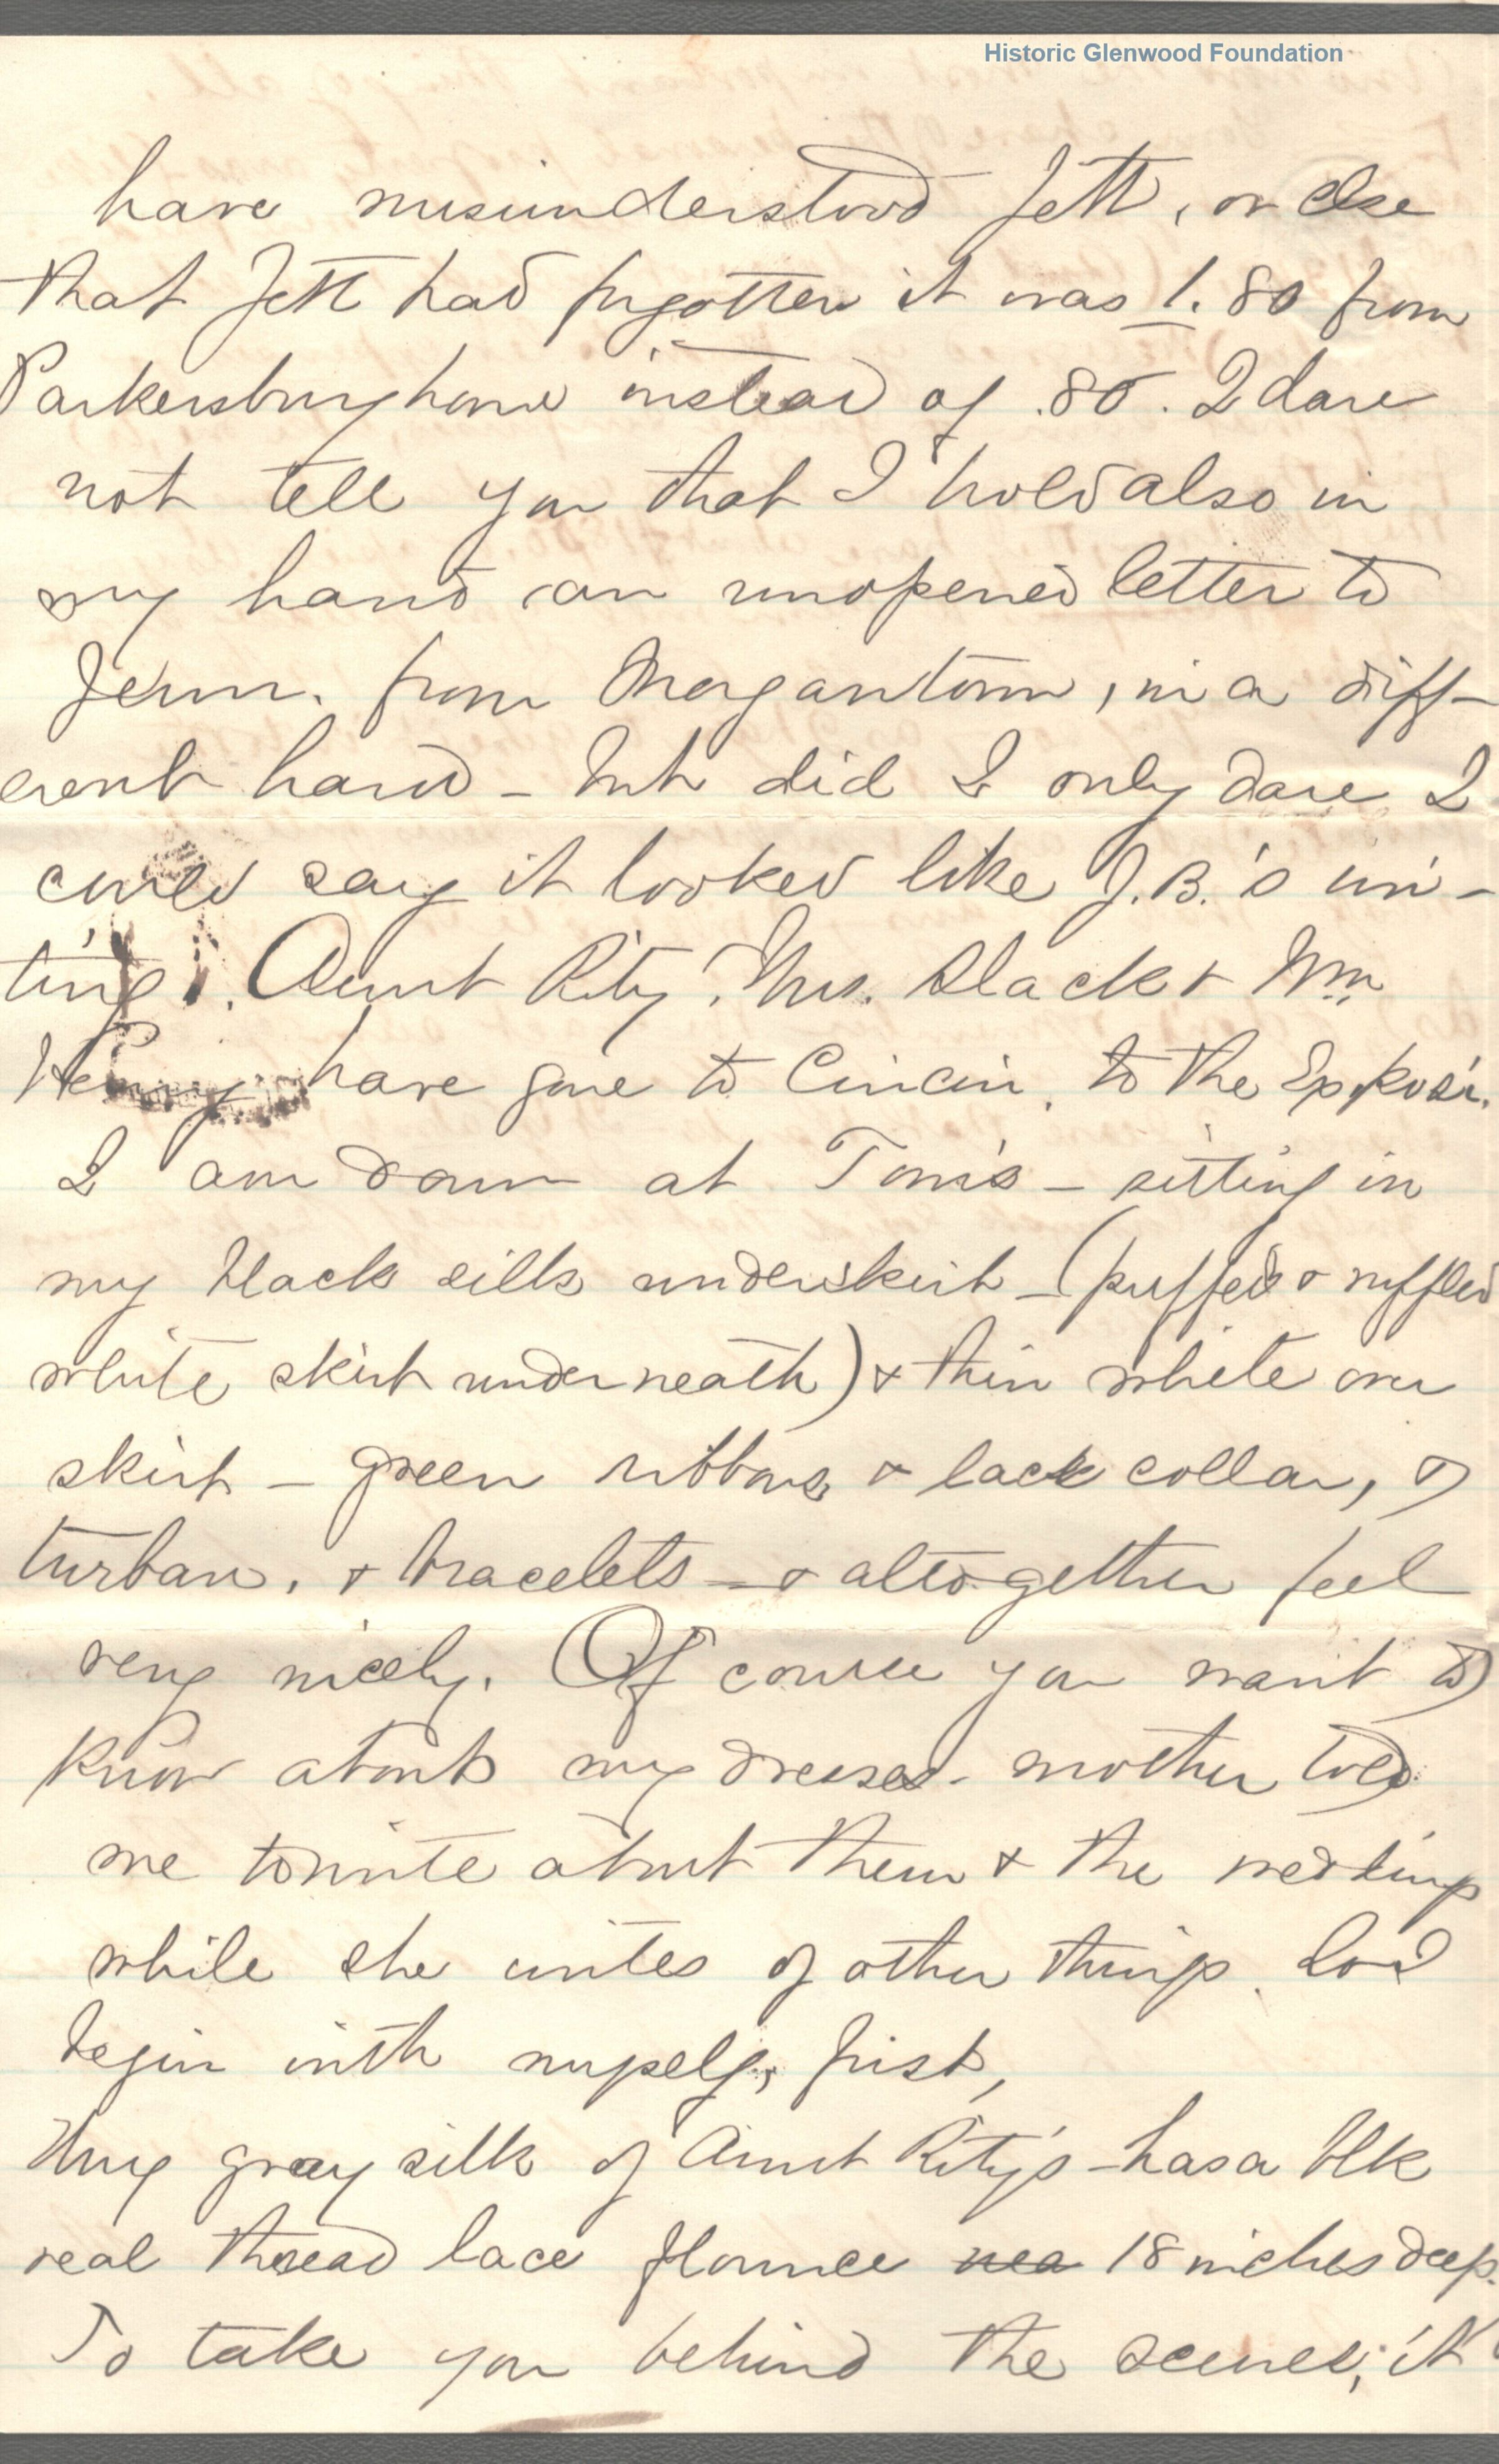 Historic Glenwood Foundation
have misunderstood Jett, or else
that Jett had forgotten it was 1.80 from
Parkersburg home instead of .80. I dare
not tell you that I hold also in
my hand an unopened letter to
Jenm. from Morgantown, in a diff-
erent hand – but did I only dare I
could say it looked like J.B.'s wri-
ting! Aunt Rity, Mrs. Slack & Wm.
Henry have gone to Cincin. to the Exposi.
I am down at Tom's – sitting in
my black silk underskirt – (puffed & ruffled
white skirt underneath) & thin white over
skirt – green ribbons & lace collar, &
turban, & bracelets – & altogether feel
very nicely. Of course you want to
know about my dresses – mother told
me to write about them & the wedding
while she writes of other things. So I
begin with myself, first,
My gray silk of Aunt Rity's – has a blk
real thread lace flounce nea 18 inches deep.
To take you behind the scenes, it